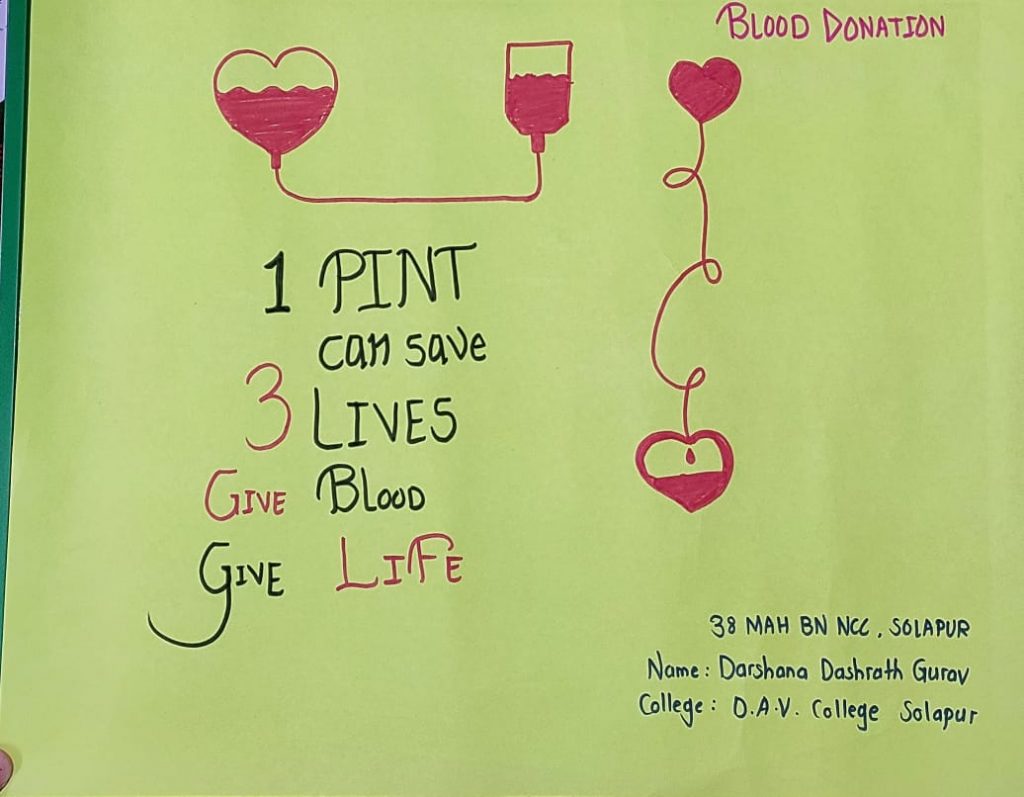 BLOOD DONATION
1 PINT
can save
3 LIVES
GIVE BLOOD
GIVE LIFE
38 MAH BN NCC, SOLAPUR
Name: Darshana Dashrath Gurav
College: D.A.V. College Solapur